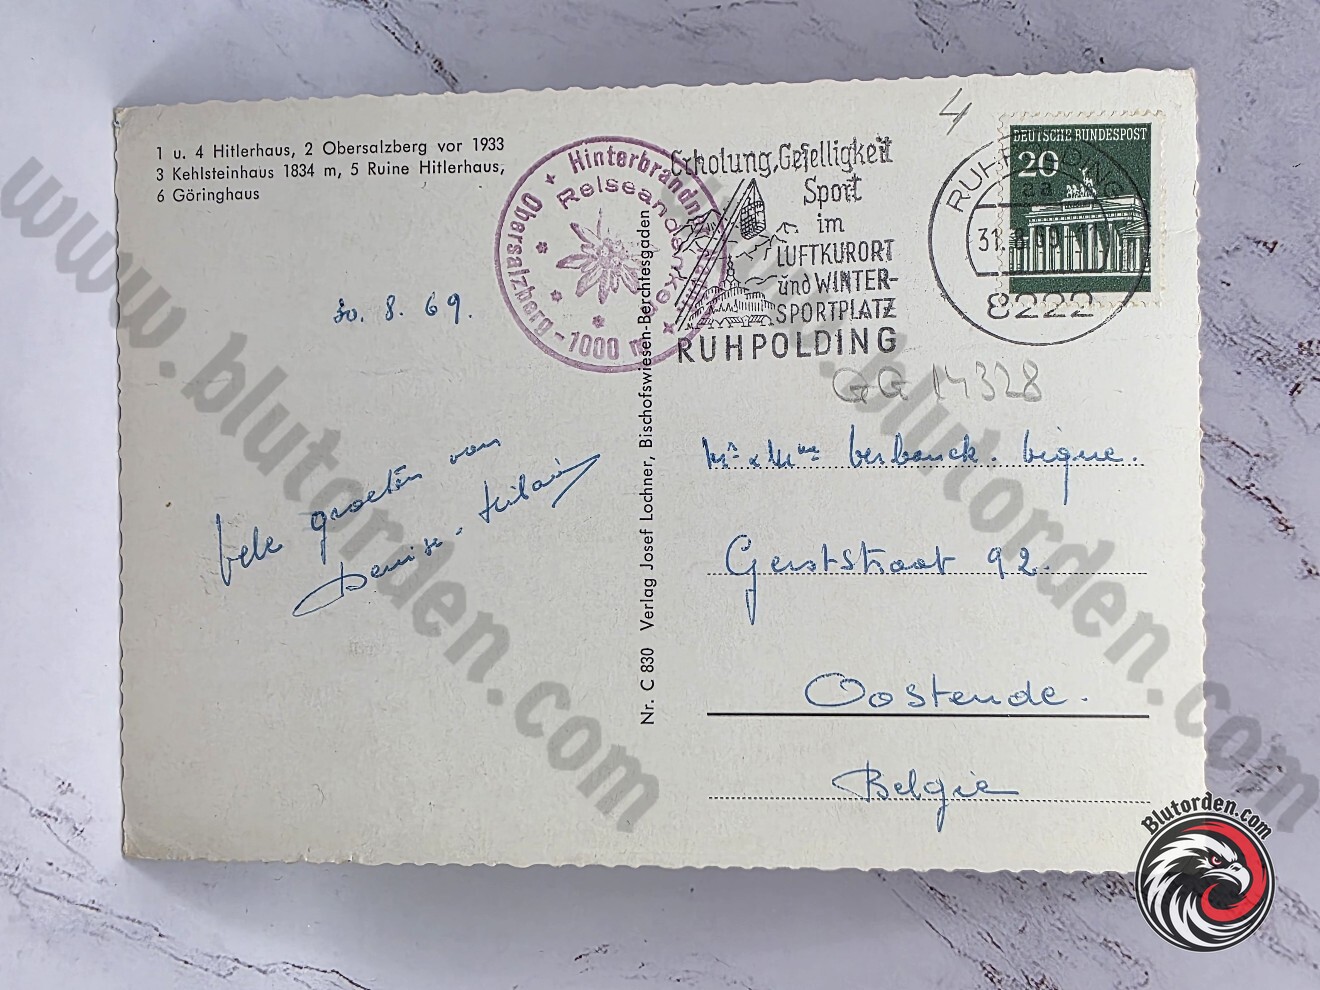 1 u. 4 Hitlerhaus, 2 Obersalzberg vor 1933
3 Kehlsteinhaus 1834 m, 5 Ruine Hitlerhaus,
6 Göringhaus
Obersalzberg - 1000 m
Hinterbrand
Reiseandenken
Erholung, Geselligkeit
Sport
im
LUFTKURORT
und WINTER-
SPORTPLATZ
RUHPOLDING
4
DEUTSCHE BUNDESPOST
20
RUHPOLDING
aa
31.8.69-11
8222
GG 14328
30. 8. 69.
vele groeten van
Denise - Hilair
Nr. C 830 Verlag Josef Lochner, Bischofswiesen-Berchtesgaden
Mr & Mme Verbanck.
Gerststraat 92.
Oostende.
België
www.blutorden.com
www.blutorden.com
Blutorden.com